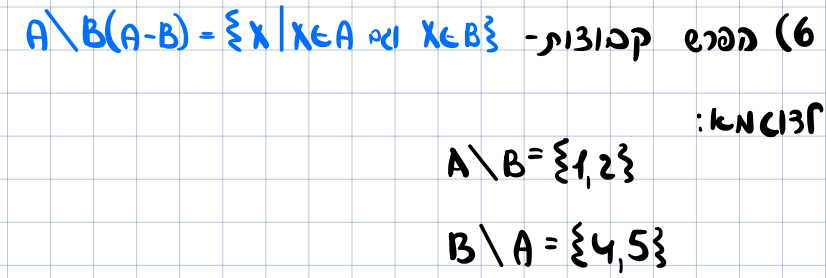 6) הפרש קבוצות- A\B(A-B) = {X|X∈A וגם X∈B}
לדוגמא:
A\B={1,2}
B\A={4,5}